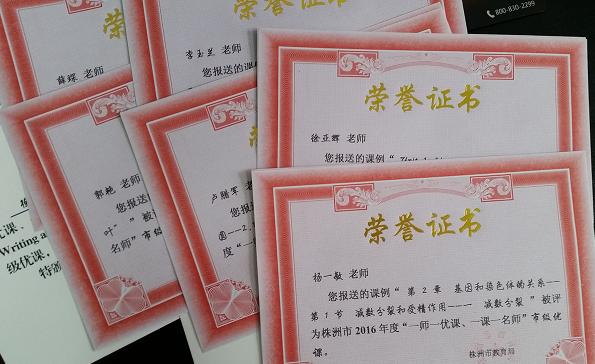 800-830-2299
荣誉证书
薛琛 老师
您报送的
荣誉证书
李玉兰 老师
您报送的课
荣誉证书
徐亚辉 老师
您报送的课例“
郭艳 老师
您报送
叶” ”被
名师”市级
卢腊军 老师
您报送
圆——2.
度“一师
荣誉证书
杨一敏 老师
您报送的课例“ 第 2 章 基因和染色体的关系——
第 1 节 减数分裂和受精作用———— 减数分裂 ”被评
为株洲市 2016 年度“一师一优课、一课一名师”市级优
课。
株洲市教育局
优课、
Writing a
级优课，
特颁